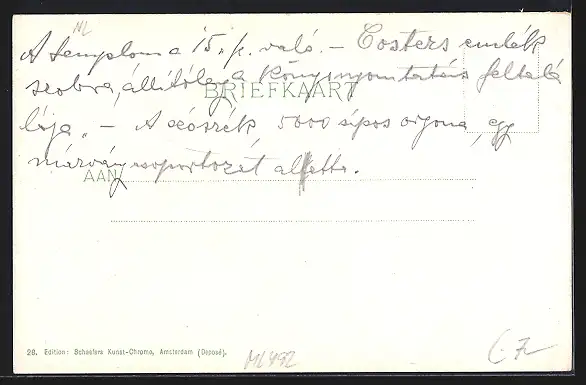 ML
A templom a 15. s. való. – Costers emlék
szobra, állítólag a könyvnyomtatás feltalá
BRIEFKAART
lója. – A szószék, 5000 sípos orgona, egy
márvány csoportozat alatta.
AAN
28. Edition: Schaefers Kunst-Chromo, Amsterdam (Deposé).
ML492